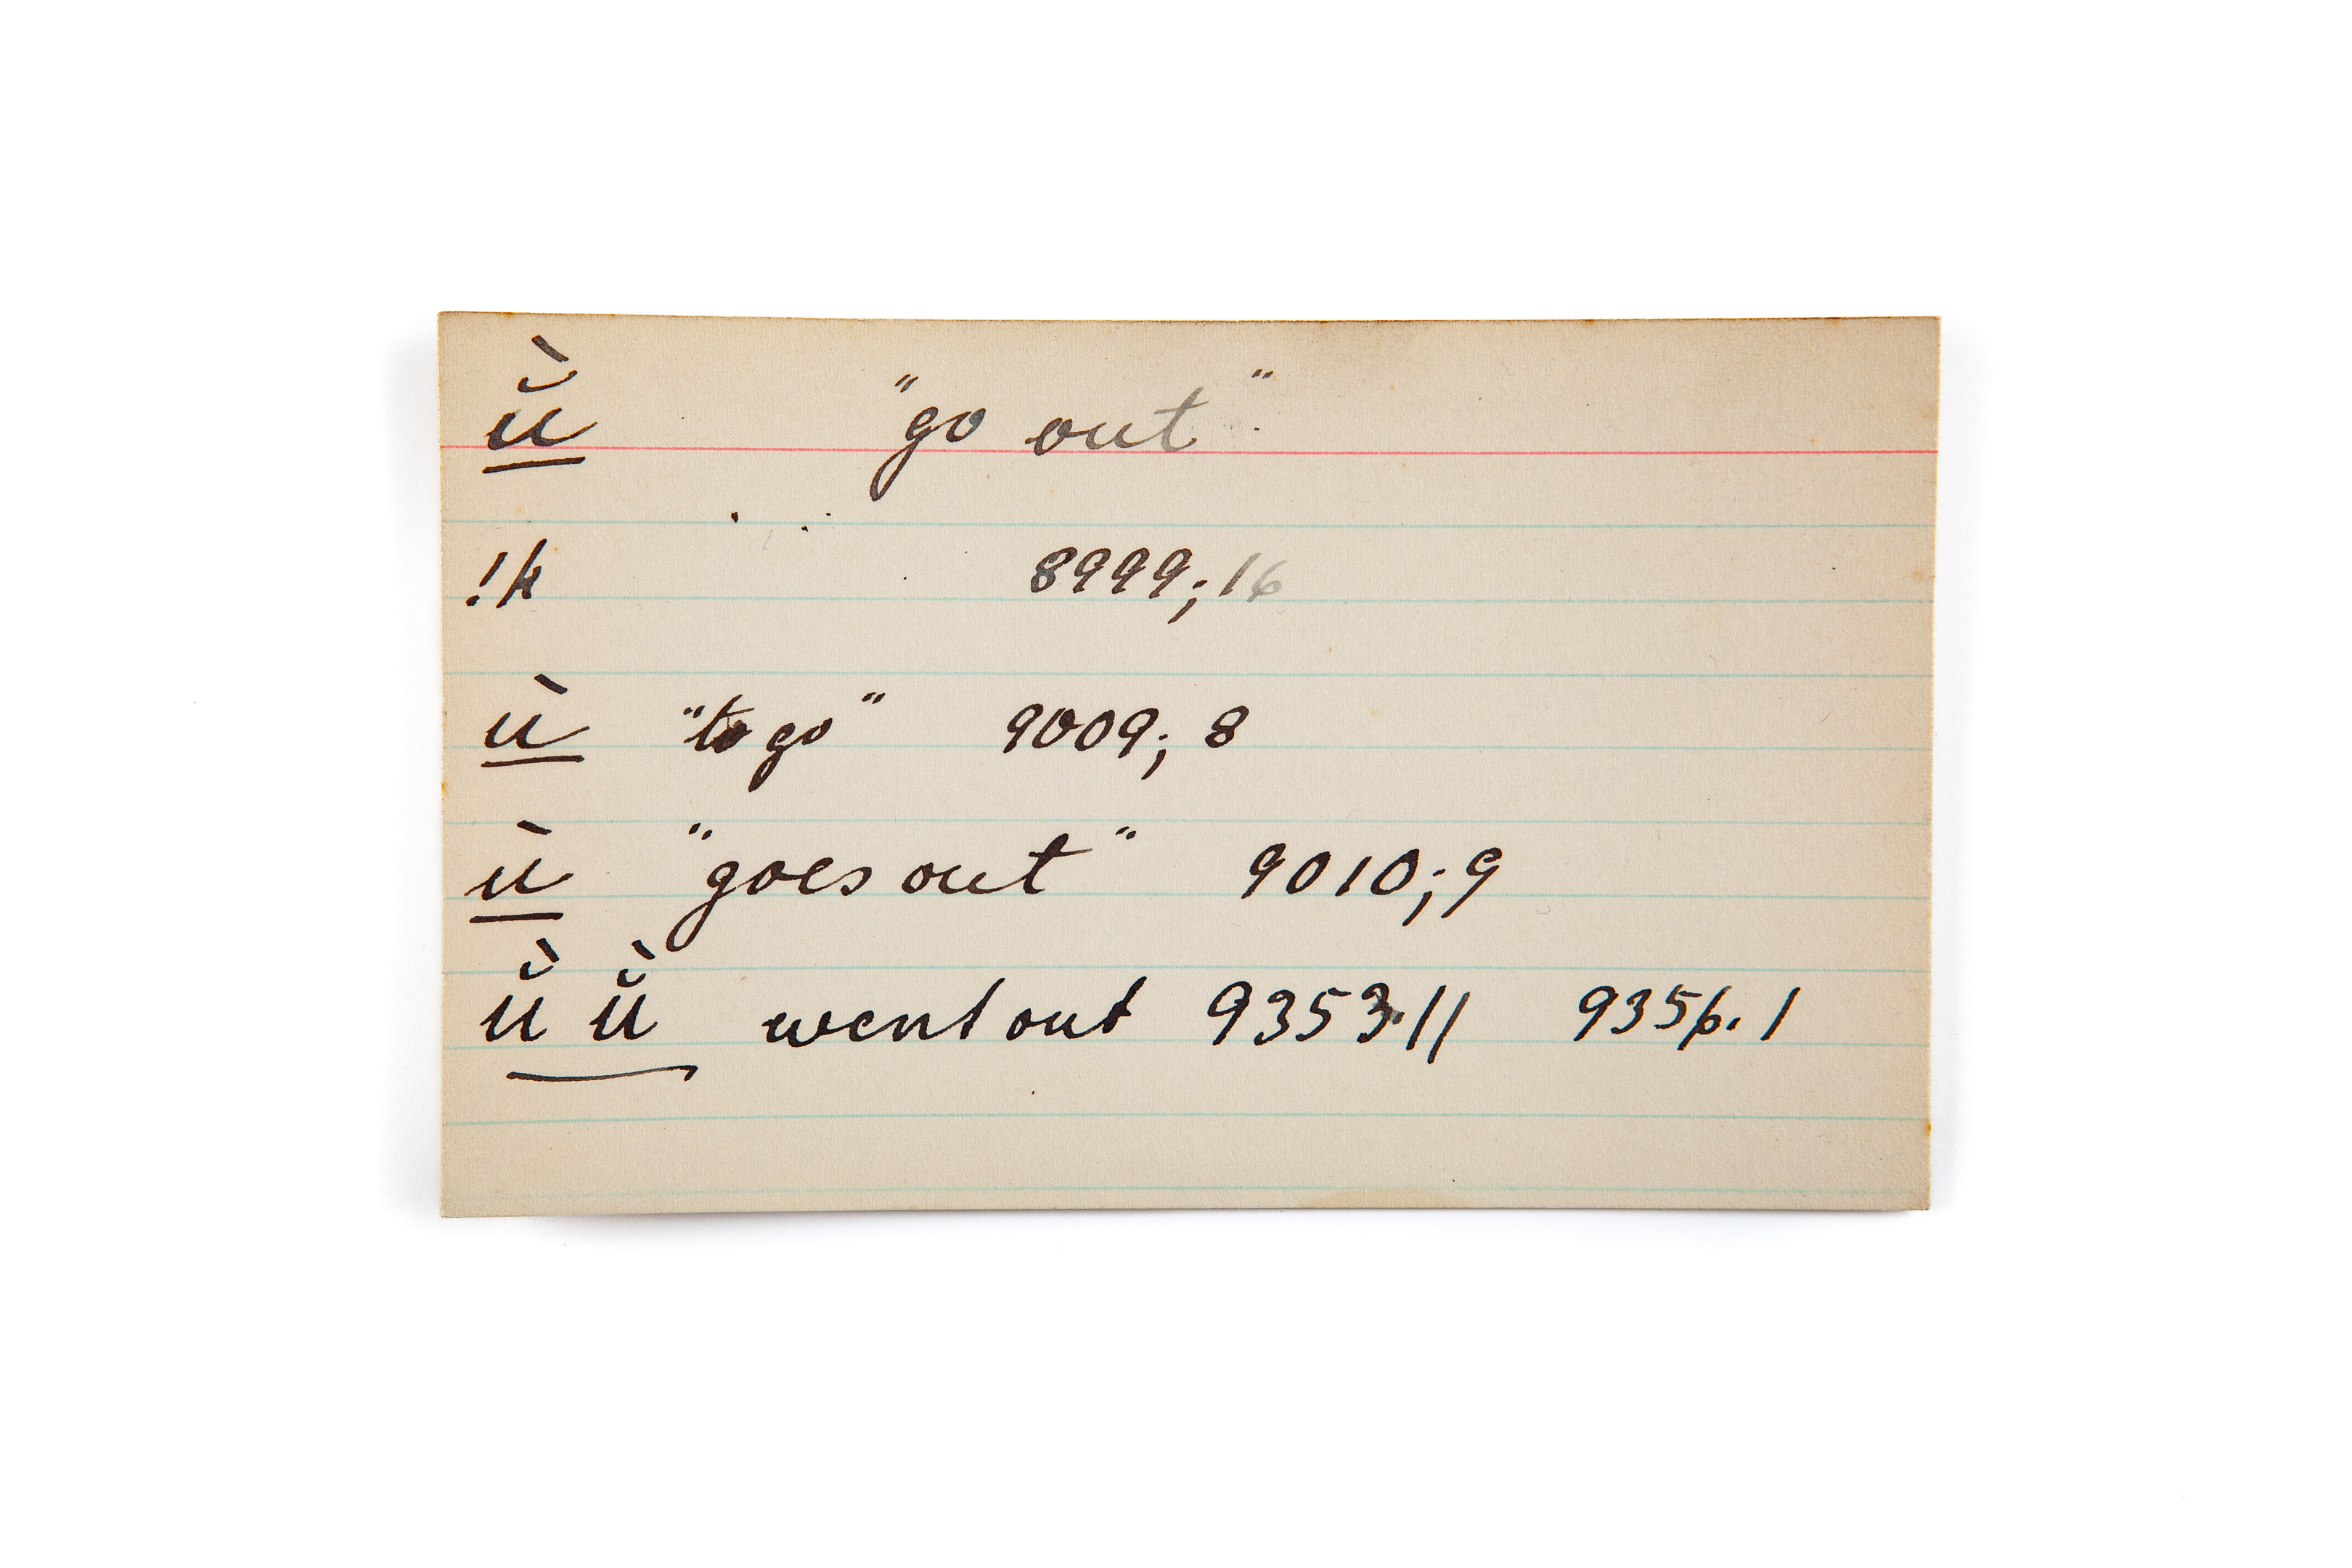 ŭ̀ "go out"
!k 8999; 16
ù "to go" 9009; 8
ù "goes out" 9010; 9
ŭ̀ ŭ̀ went out 9353.11 9356.1